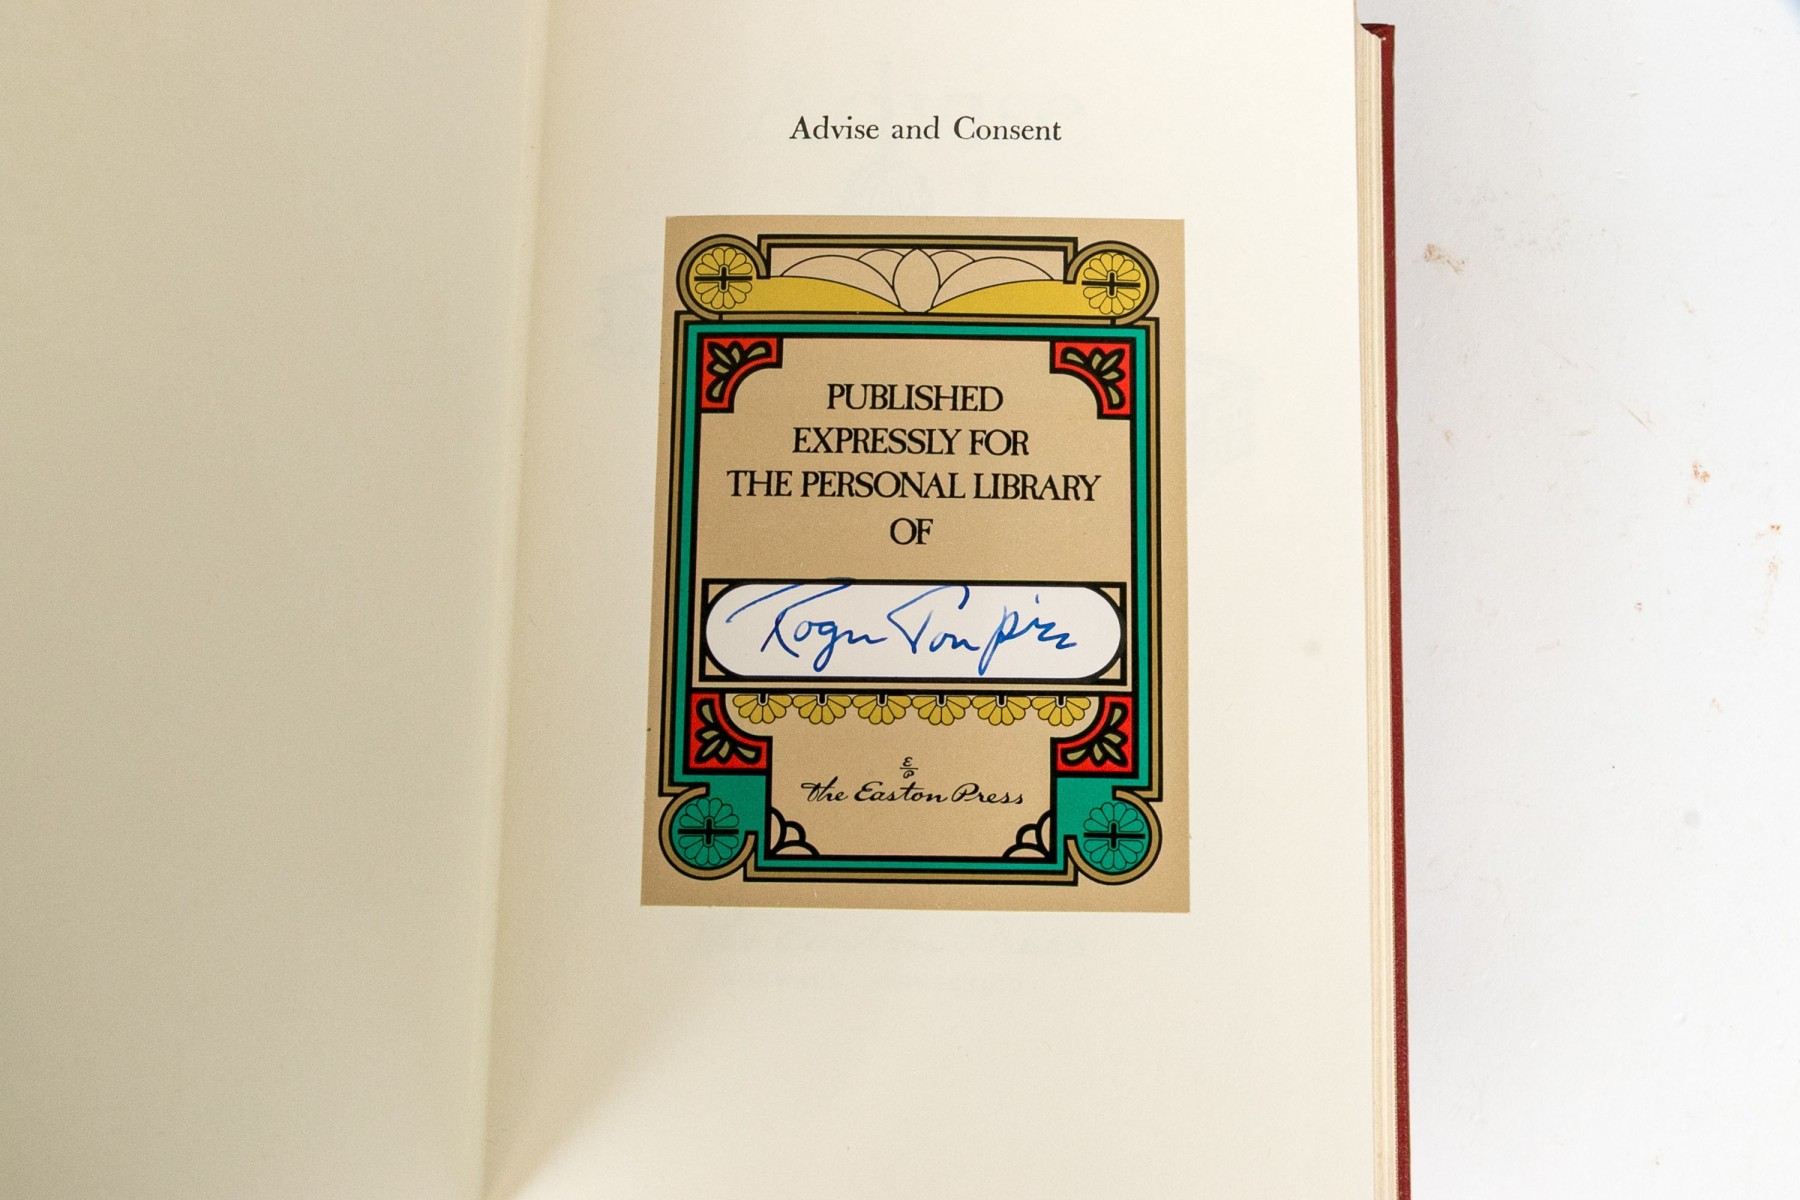 Advise and Consent
PUBLISHED
EXPRESSLY FOR
THE PERSONAL LIBRARY
OF
Roger
E/P
The Easton Press